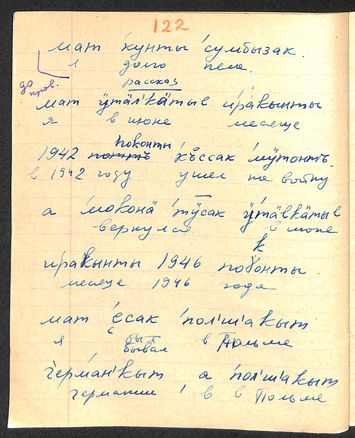 122
мат ӄунты сумбызак.
я долго пела.
до пров.
рассказ
мат ӱтӓлʼкӓтыв ирӓкынты
я в июне месяце
поконты
1942 къссак мӱтонтъ.
в 1942 году ушел на войну
а мокона тӱсак ӱтӓвкӓтыв
вернулся в июне
к
ирӓкынты 1946 поконты.
месяце 1946 года
мат есак полʼшакыт
я был в Польше
бывал
германкыт а полʼшакыт
германии, в Польше